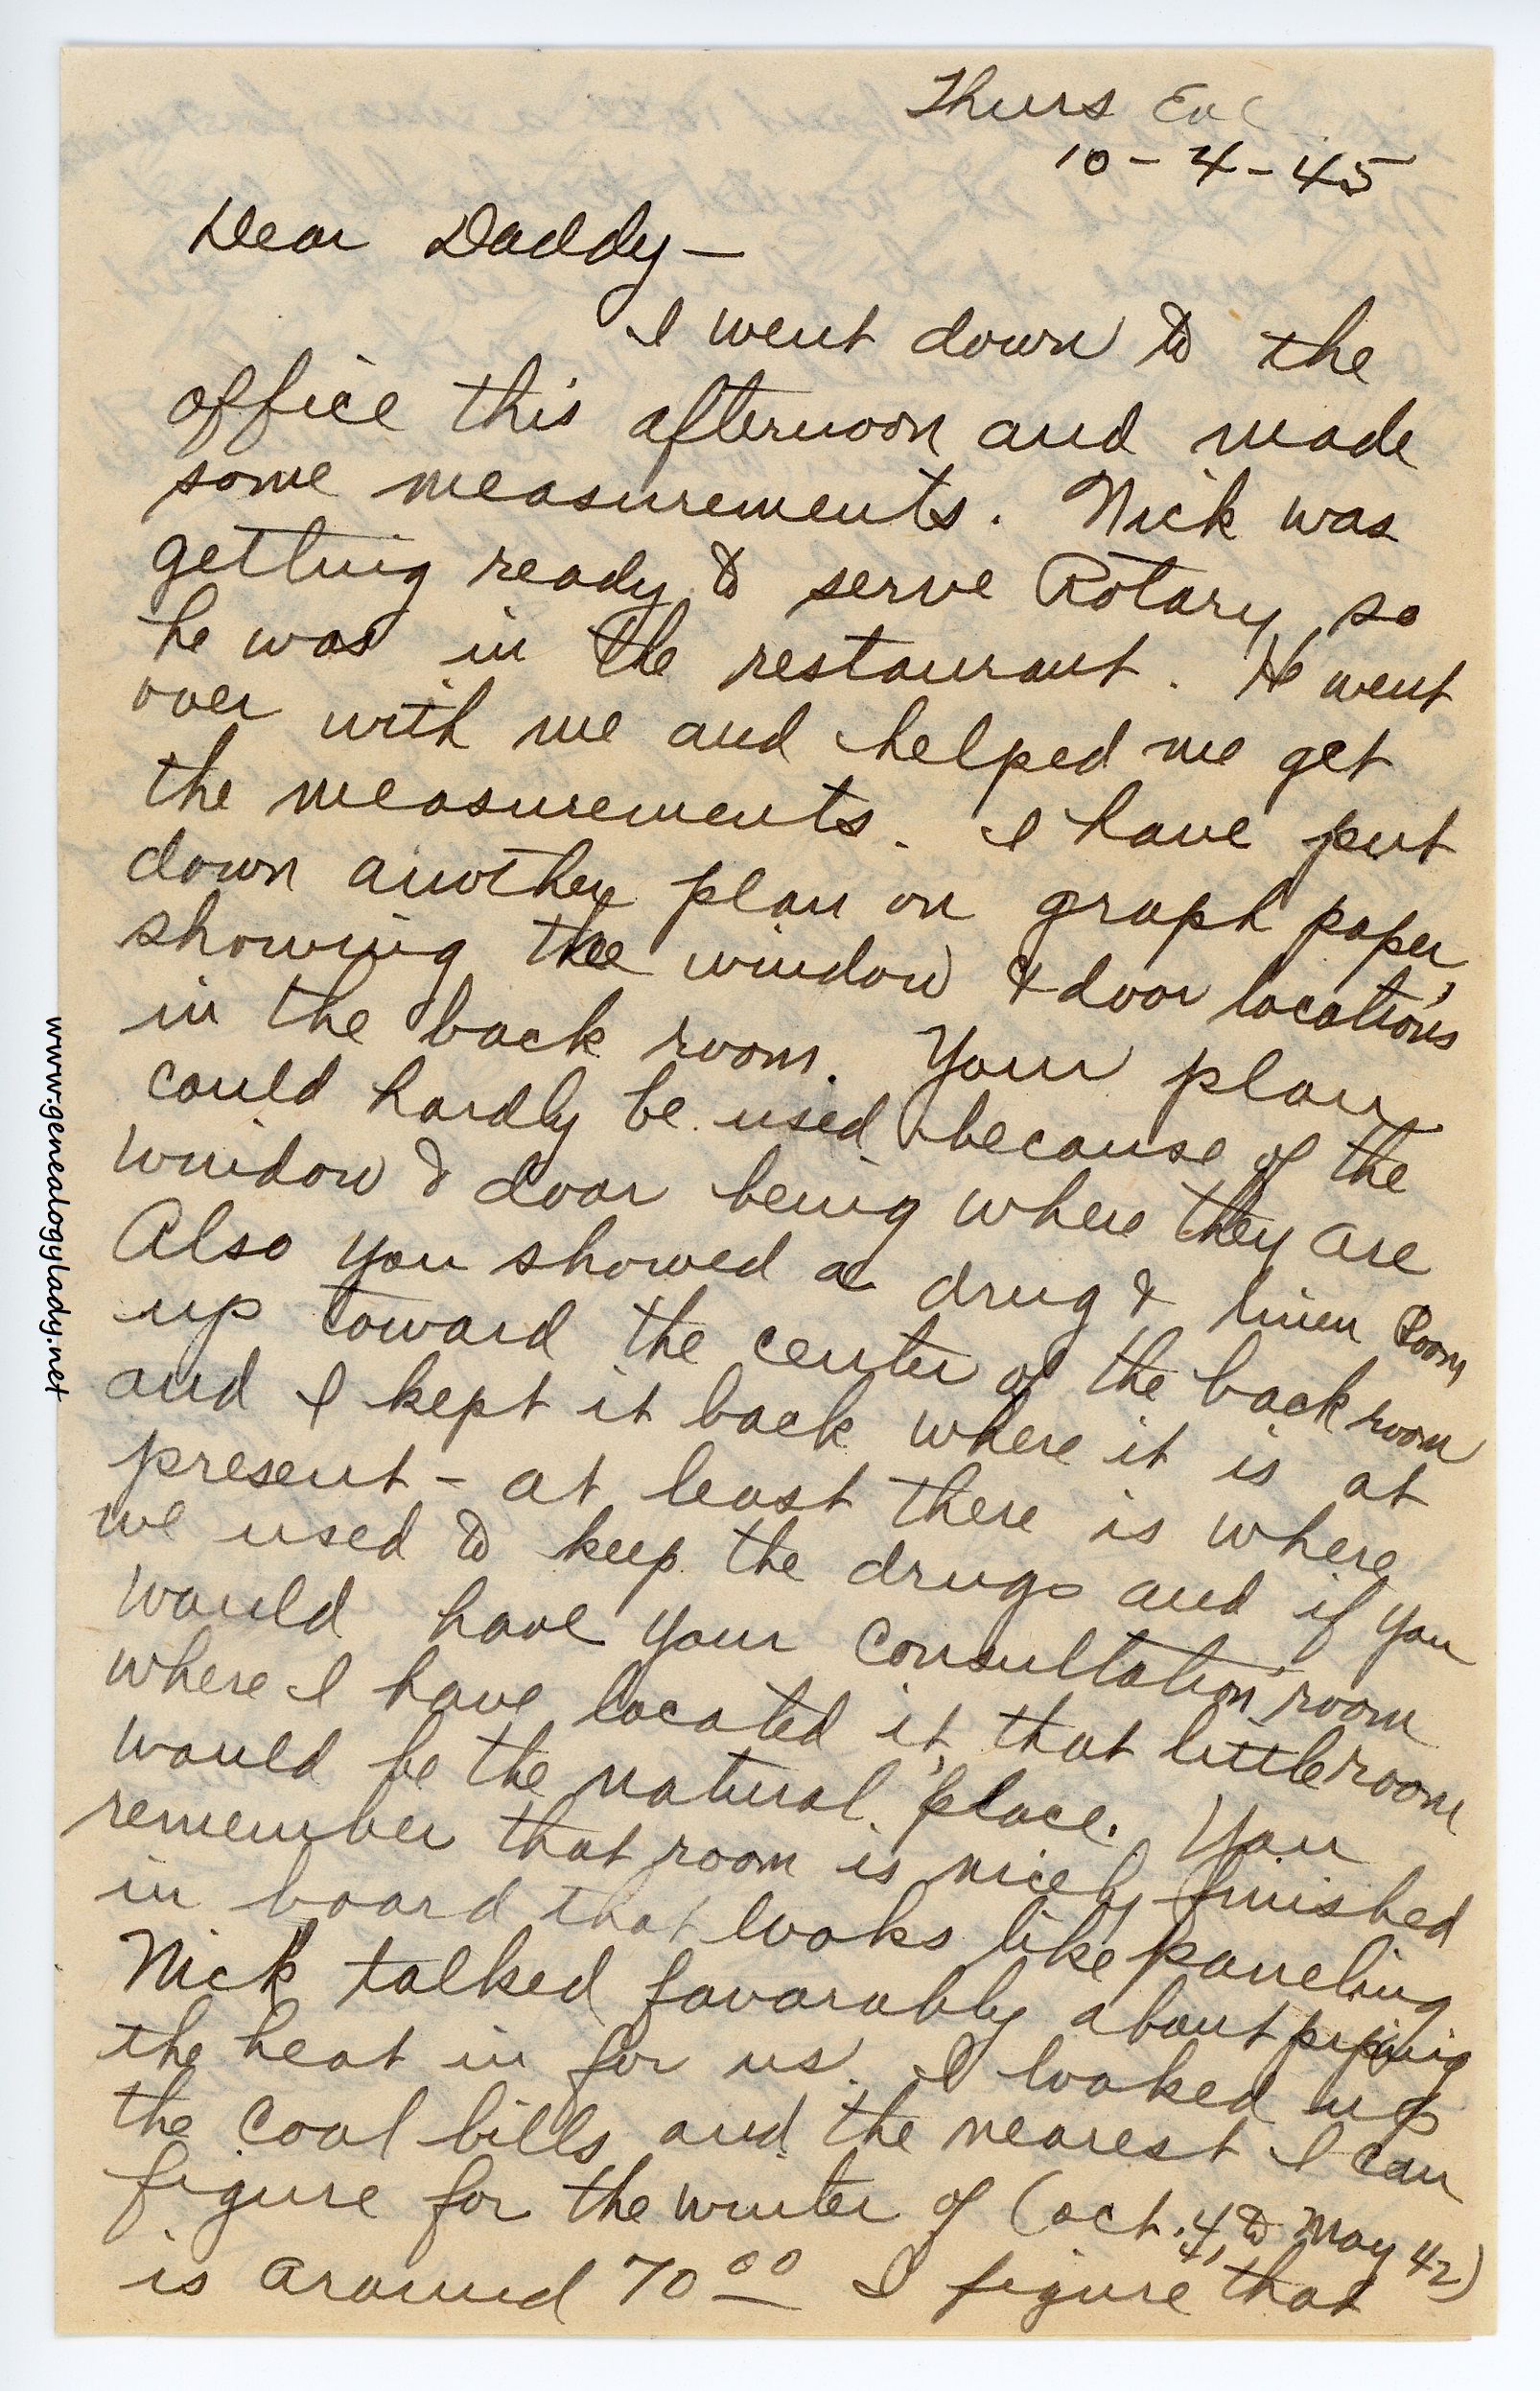 Thurs Eve
10-4-45
Dear Daddy—
I went down to the
office this afternoon and made
some measurements. Nick was
getting ready to serve Rotary, so
he was in the restaurant. He went
over with me and helped me get
the measurements. I have put
down another plan on graph paper,
showing the window & door locations
in the back room. Your plan
could hardly be used because of the
window & door being where they are
Also you showed a drug & linen room
up toward the center of the back room
and I kept it back where it is at
present - at least there is where
we used to keep the drugs and if you
would have your consultation room
where I have located it, that little room
would be the natural place. You
remember that room is nicely finished
in board that looks like paneling
Nick talked favorably about piping
the heat in for us. I looked up
the coal bills and the nearest I can
figure for the winter of (Oct. 41 to May 42)
is around 70 00 I figure that
www.genealogylady.net